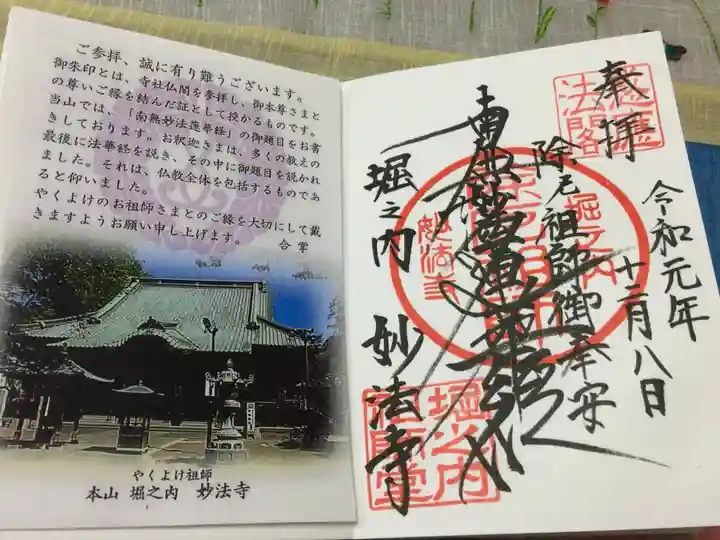 ご参拝、誠に有り難うございます。
御朱印とは、寺社仏閣を参拝し、御本尊さまと
の尊いご縁を結んだ証として授かるものです。
当山では、「南無妙法蓮華経」の御題目をお書
きしております。お釈迦さまは、多くの教えの
最後に法華経を説き、その中に御題目を説かれ
ました。それは、仏教全体を包括するものであ
ると仰いました。
やくよけのお祖師さまとのご縁を大切にして戴
きますようお願い申し上げます。
合掌
やくよけ祖師
本山 堀之内 妙法寺
奉拝
令和元年
十二月八日
除厄祖師御奉安
南無妙法蓮華経
堀之内 妙法寺
堀之内
妙法寺
堀之内